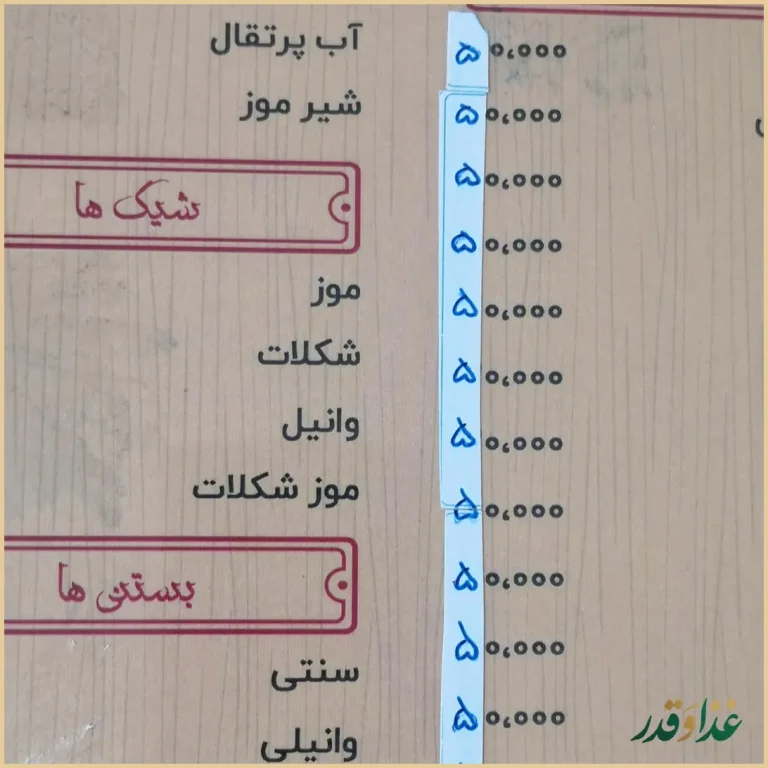 ۵۰،۰۰۰
۵۰،۰۰۰
۵۰،۰۰۰
۵۰،۰۰۰
۵۰،۰۰۰
۵۰،۰۰۰
۵۰،۰۰۰
۵۰،۰۰۰
۵۰،۰۰۰
۵۰،۰۰۰
۵۰،۰۰۰
آب پرتقال
شیر موز
شیک ها
موز
شکلات
وانیل
موز شکلات
بستنی ها
سنتی
وانیلی
غذا و قدر